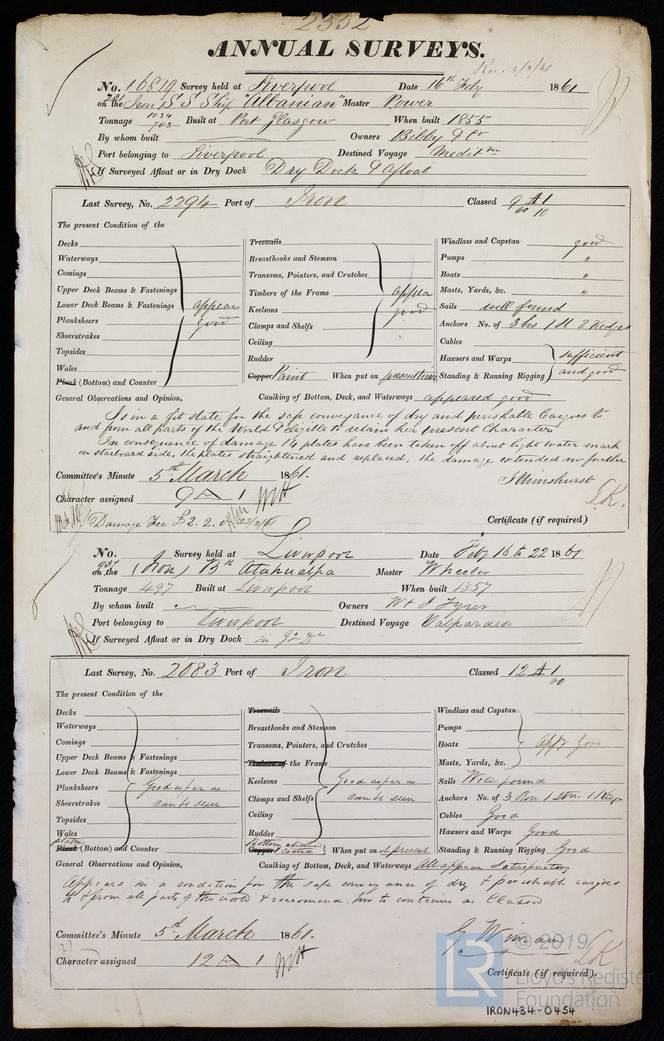 2352
ANNUAL SURVEYS.
No. 16819 Survey held at Liverpool Date 16th Feby 1861
on the Iron S S Ship "Albanian" Master Power
Tonnage 1034 743 Built at Port Glasgow When built 1855
By whom built Owners Bibby & Co
Port belonging to Liverpool Destined Voyage Meditn
If Surveyed Afloat or in Dry Dock Dry Dock & Afloat
Last Survey, No. 2294 Port of Iron Classed 9 A 1
The present Condition of the
Decks Treenails Windlass and Capstan good
Waterways Breasthooks and Stemson Pumps "
Comings Transoms, Pointers, and Crutches Boats "
Upper Deck Beams & Fastenings Timbers of the Frame appear Masts, Yards, &c. "
Lower Deck Beams & Fastenings appear Keelsons good Sails well found
Planksheers good Clamps and Shelfs Anchors No. of 3 bs 1 St 2 Kedges
Sheerstrakes Ceiling Cables
Topsides Rudder Hawsers and Warps sufficient
Wales Copper Paint When put on present time Standing & Running Rigging and good
Plank (Bottom) and Counter
General Observations and Opinion, Caulking of Bottom, Deck, and Waterways appeared good
Is in a fit state for the safe conveyance of dry and perishable Cargoes to
and from all parts of the World & eligible to retain her present Character
In consequence of damage 14 plates have been taken off about light water mark
on starboard side, the plates straightened and replaced, the damage extended no further
Committee's Minute 5th March 1861.
Character assigned 9 A 1
Damage Fee £2. 2. 0
Certificate (if required)
No. Survey held at Liverpool Date Feby 16 to 22 1861
on the (Iron) Bk Atahualpa Master Wheeler
Tonnage 497 Built at Liverpool When built 1857
By whom built Owners
Port belonging to Liverpool Destined Voyage Valparaiso
If Surveyed Afloat or in Dry Dock
Last Survey, No. 2083 Port of Iron Classed 12 A 1
The present Condition of the
Decks Treenails Windlass and Capstan
Waterways Breasthooks and Stemson Pumps
Comings Transoms, Pointers, and Crutches Boats
Upper Deck Beams & Fastenings Timbers of the Frame Masts, Yards, &c.
Lower Deck Beams & Fastenings Keelsons Good as far as Sails Well found
Planksheers Good as far as Clamps and Shelfs can be seen Anchors No. of
Sheerstrakes can be seen Ceiling Cables Good
Topsides Rudder Hawsers and Warps Good
Wales Copper When put on at present Standing & Running Rigging Good
Plank (Bottom) and Counter
General Observations and Opinion, Caulking of Bottom, Deck, and Waterways All appear satisfactory
Appears in a condition for the safe conveyance of dry & perishable cargoes
to & from all parts of the world & recommend her to continue as Classed
Committee's Minute 5th March 1861.
Character assigned 12 A 1
Certificate (if required).
© 2019
LR
Lloyd's Register
Foundation
IRON434-0454